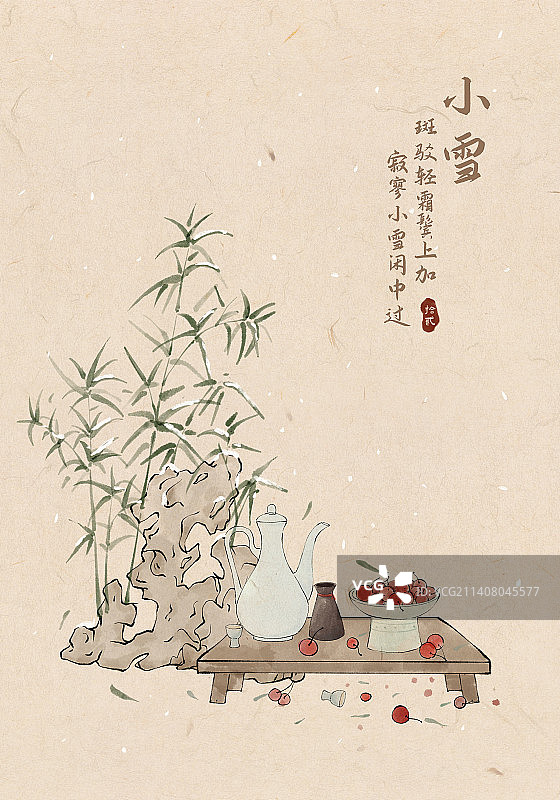 小雪
斑驳轻霜鬓上加
寂寥小雪闲中过
拾贰
VCG
VCG211408045577